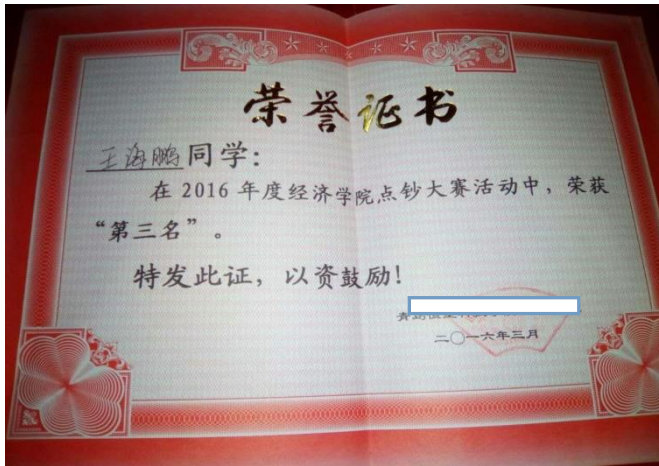 荣誉证书
王海鹏同学:
在 2016 年度经济学院点钞大赛活动中，荣获
“第三名”。
特发此证，以资鼓励!
二〇一六年三月